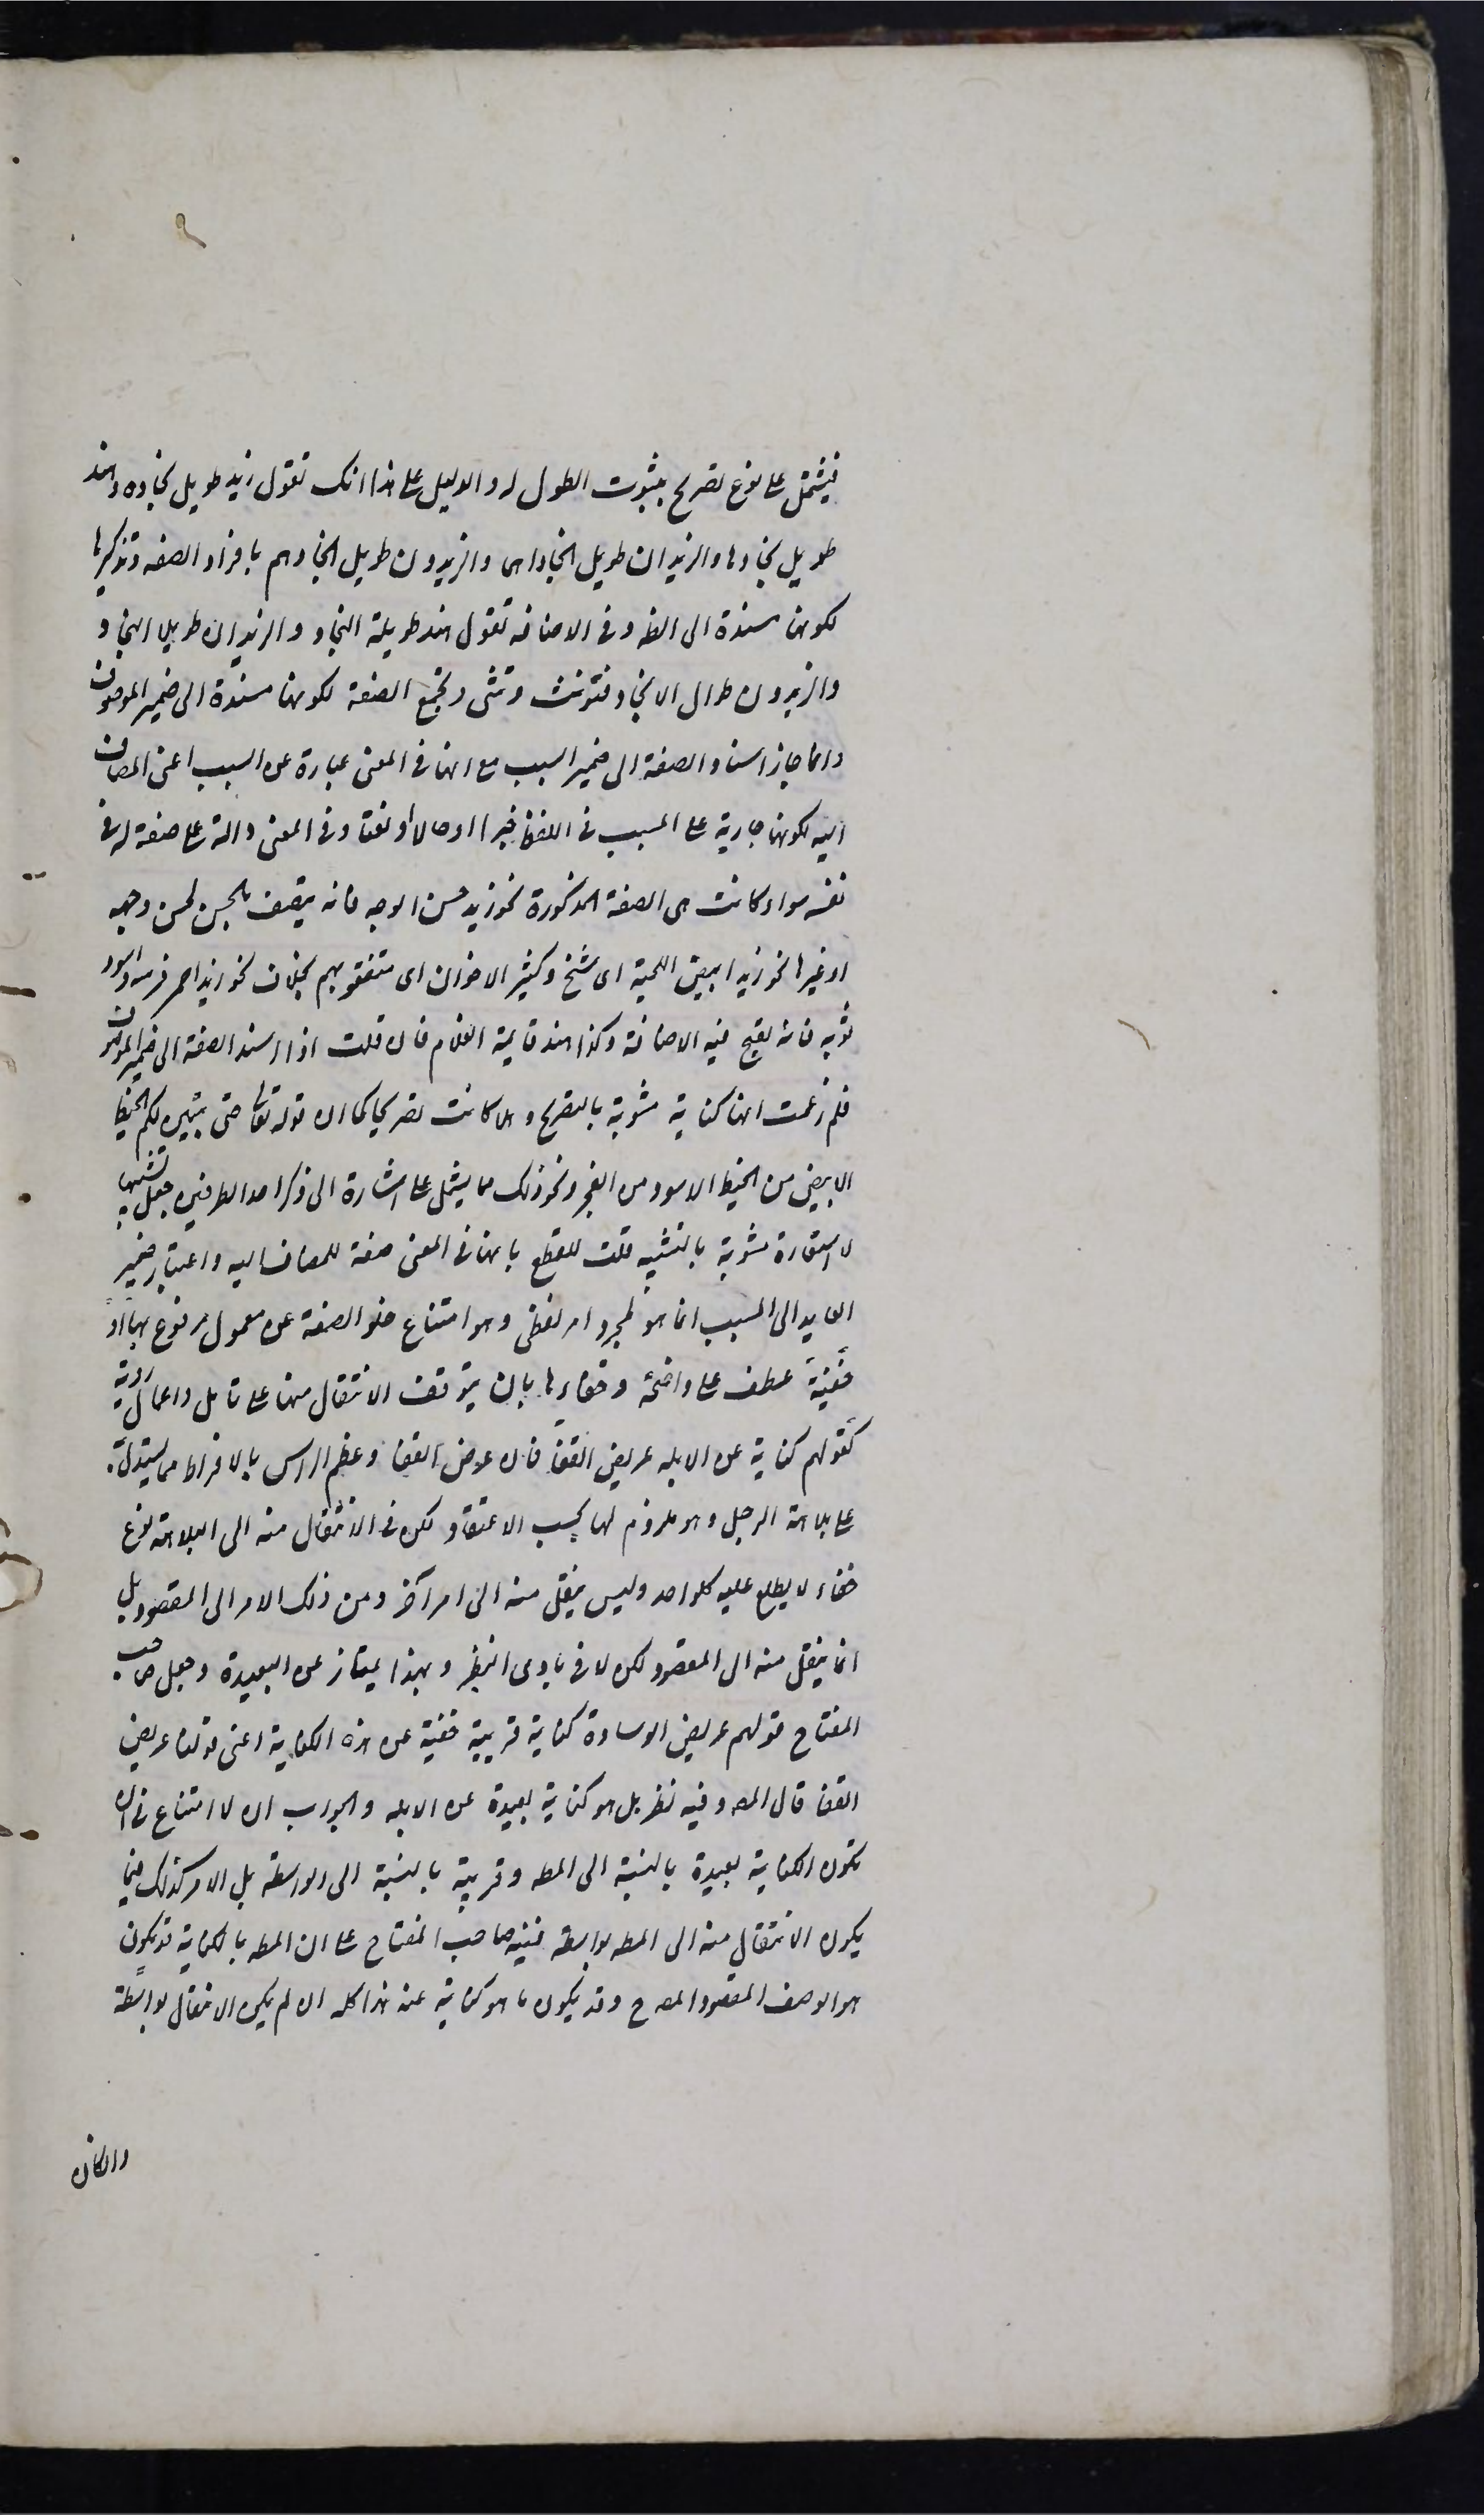 فيشتمل على نوع تصريح بثبوت الطول له والدليل على هذا انك تقول زيد طويل نجاده وهند
طويل نجادها والزيدان طويل نجاداهما والزيدون طويل انجادهم بافراد الصفه وتذكيرها
لكونها مسندة الى الظ وفى الاضافه تقول هند طويلة النجاد والزيدان طويلا النجاد
والزيدون طوال الانجاد فتونث وتثنى وتجمع الصفة لكونها مسندة الى ضمير الموصوف
وانما جاز اسناد الصفة الى ضمير السبب مع انها فى المعنى عبارة عن السبب اعنى المضاف
اليه لكونها جارية على المسبب فى اللفظ خبرا او حالا او نعتا وفى المعنى دالة على صفة له فى
نفسه سواء كانت هى الصفة المذكورة نحو زيد حسن الوجه فانه يتصف بالحسن لحسن وجهه
او غيرها نحو زيد ابيض اللحية اى شيخ وكثير الاخوان اى متقو بهم بخلاف نحو زيد احمر فرسه واسود
ثوبه فانه يقبح فيه الاضافة وكذا هند قايمة الغلام فان قلت اذا اسند الصفة الى ضمير الموصوف
فلم زعمت انها كناية مشوبة بالتصريح وهلا كانت تصريحا كما ان قوله تعالى حتى يتبين لكم الخيط
الابيض من الخيط الاسود من الفجر ونحو ذلك مما يشتمل على اشارة الى ذكر احد الطرفين جعل تشبيها
لا استعارة مشوبة بالتشبيه قلت للقطع بانها فى المعنى صفة للمضاف اليه واعتبار ضمير
العايد الى المسبب انما هو لمجرد امر لفظى وهو امتناع خلو الصفة عن معمول مرفوع بها او
خفية عطف على واضحة وخفاءها بان يتوقف الانتقال منها على تامل واعمال روية
كقولهم كناية عن الابله عريض القفا فان عرض القفا وعظم الراس بالافراط مما يستدل به
على بلاهة الرجل وهو ملزوم لها بحسب الاعتقاد لكن فى الانتقال منه الى البلاهة نوع
خفاء لا يطلع عليه كل واحد وليس ينتقل منه الى امر آخر ومن ذلك الامر الى المقصود بل
انما ينتقل منه الى المقصود لكن لا فى بادى النظر وبهذا يمتاز عن البعيدة وجعل صاحب
المفتاح قولهم عريض الوسادة كناية قريبة خفية عن هذه الكناية اعنى قولنا عريض
القفا قال المص وفيه نظر بل هو كناية بعيدة عن الابله والجواب ان لا امتناع فى ان
تكون الكناية بعيدة بالنسبة الى المط وقريبة بالنسبة الى الواسطة بل الامر كذلك فيما
يكون الانتقال منه الى المط بواسطة فنبه صاحب المفتاح على ان المط بالكناية قد يكون
هو الوصف المقصود المصرح وقد يكون ما هو كناية عنه هذا كله ان لم يكن الانتقال بواسطة
وان كان